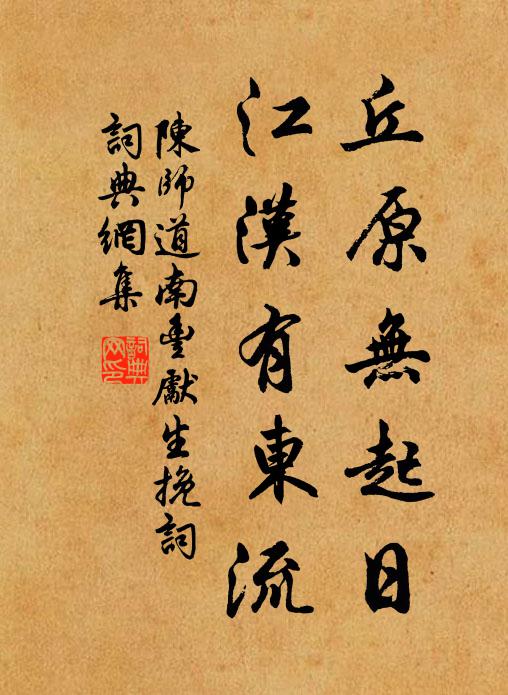 丘原無起日
江漢有東流
陳師道南豐獻生挽詞
詞典網集
詞典網印